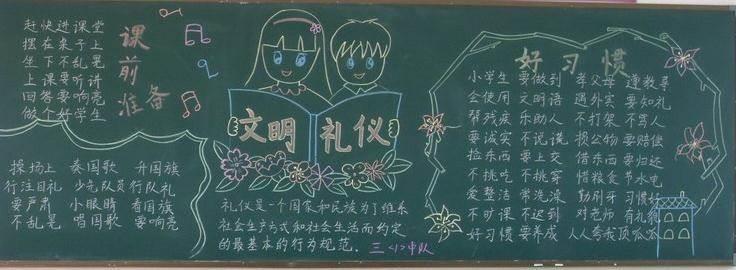 赶快进课堂
摆在桌子上
坐下不乱晃
上课要听讲
回答要响亮
做个好学生
课前准备
操场上 奏国歌 升国旗
行注目礼 少先队员 行队礼
要严肃 小眼睛 看国旗
不乱晃 唱国歌 要响亮
文明礼仪
礼仪是一个国家和民族为了维系
社会生产方式和社会生活而约定
的最基本的行为规范。三〈1〉中队
好习惯
小学生 要做到 孝父母 遵教导
会使用 文明语 遇外宾 要知礼
帮残疾 乐助人 不打架 不骂人
要诚实 不说谎 损公物 要赔偿
捡东西 要上交 借东西 要归还
不挑吃 不挑穿 惜粮食 节水电
爱整洁 常洗澡 勤刷牙 习惯好
不旷课 不迟到 对老师 有礼貌
好习惯 要养成 人人夸我顶呱呱